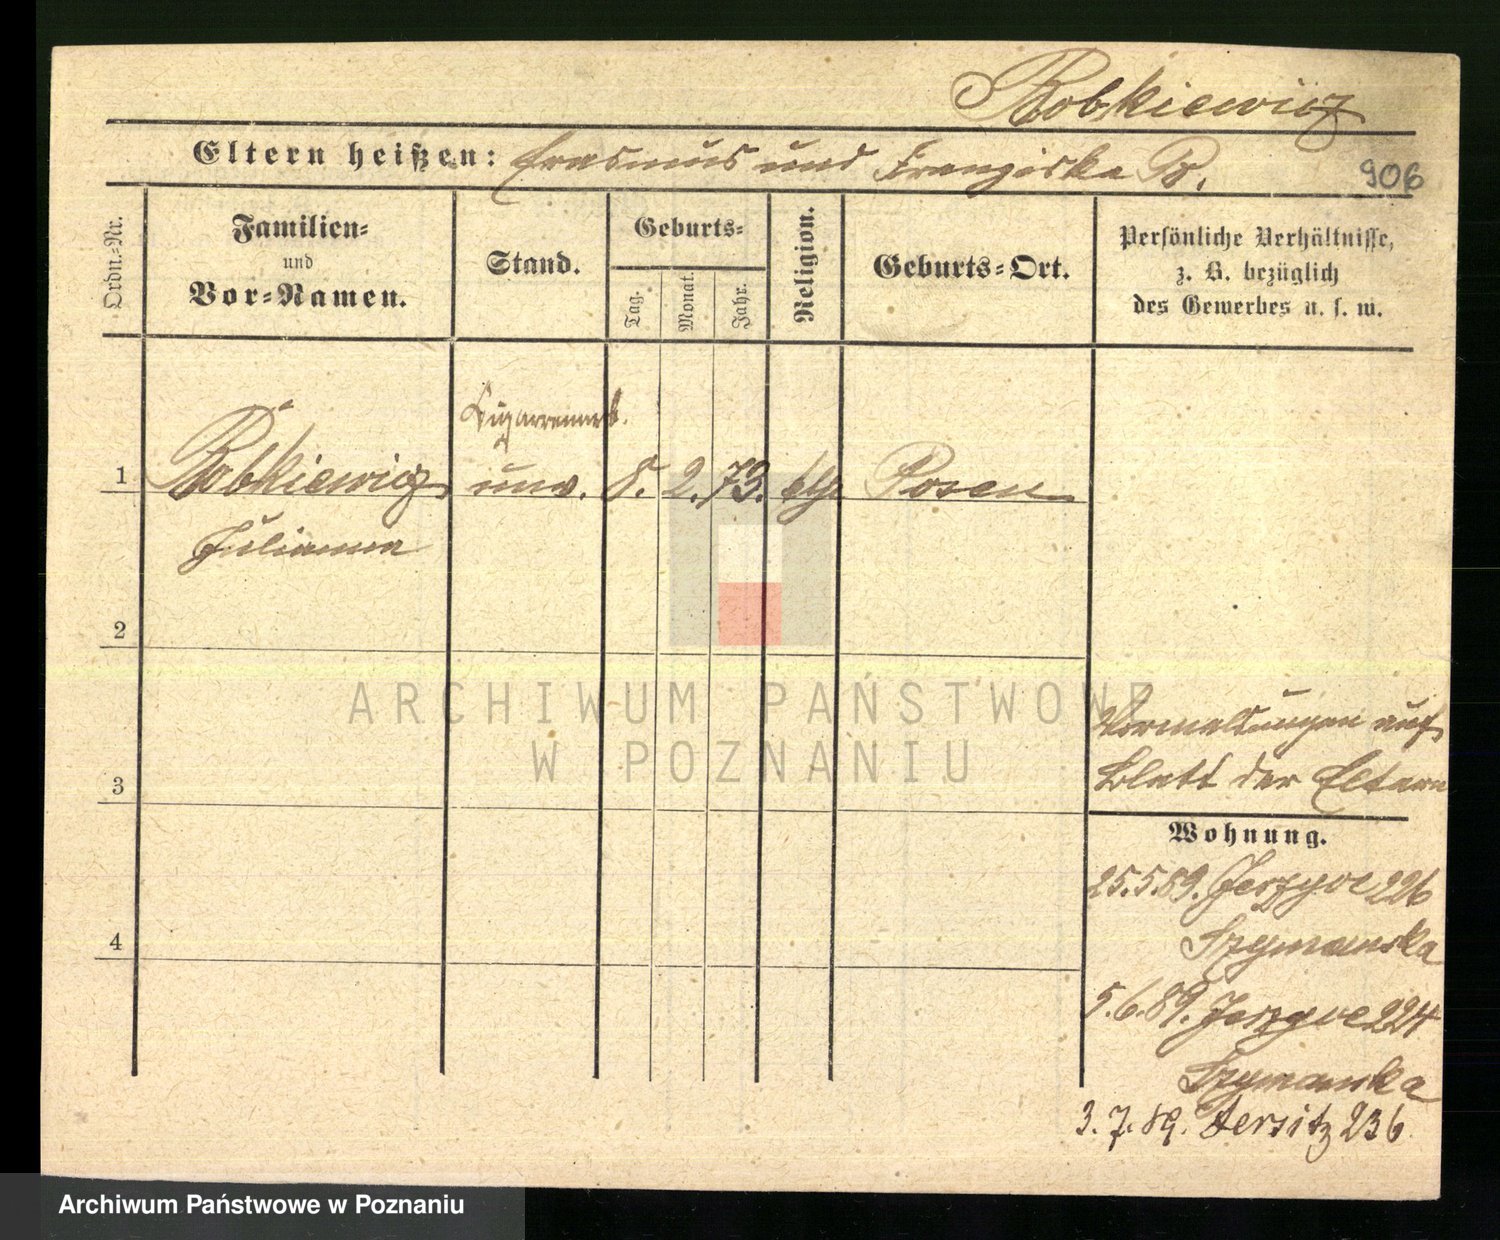 Robkiewicz
Eltern heißen: Erasmus und Franziska R.
906
Ordn.-Nr.
Familien-
und
Vor-Namen.
Stand.
Geburts-
Tag.
Monat.
Jahr.
Religion.
Geburts-Ort.
Persönliche Verhältnisse,
z. B. bezüglich
des Gewerbes u. s. w.
Cigarrenarb.
1 Robkiewicz unv. 8. 2. 73. Posen
Julianna
2
ARCHIWUM PAŃSTWOWE
W POZNANIU
Vormeldungen auf
Blatt der Eltern
3
Wohnung.
25.5.89. Jerzyce 226
Szymanska
4
5.6.89. Jerzyce 224
Szymanska
3.7.89. Jersitz 236
Archiwum Państwowe w Poznaniu